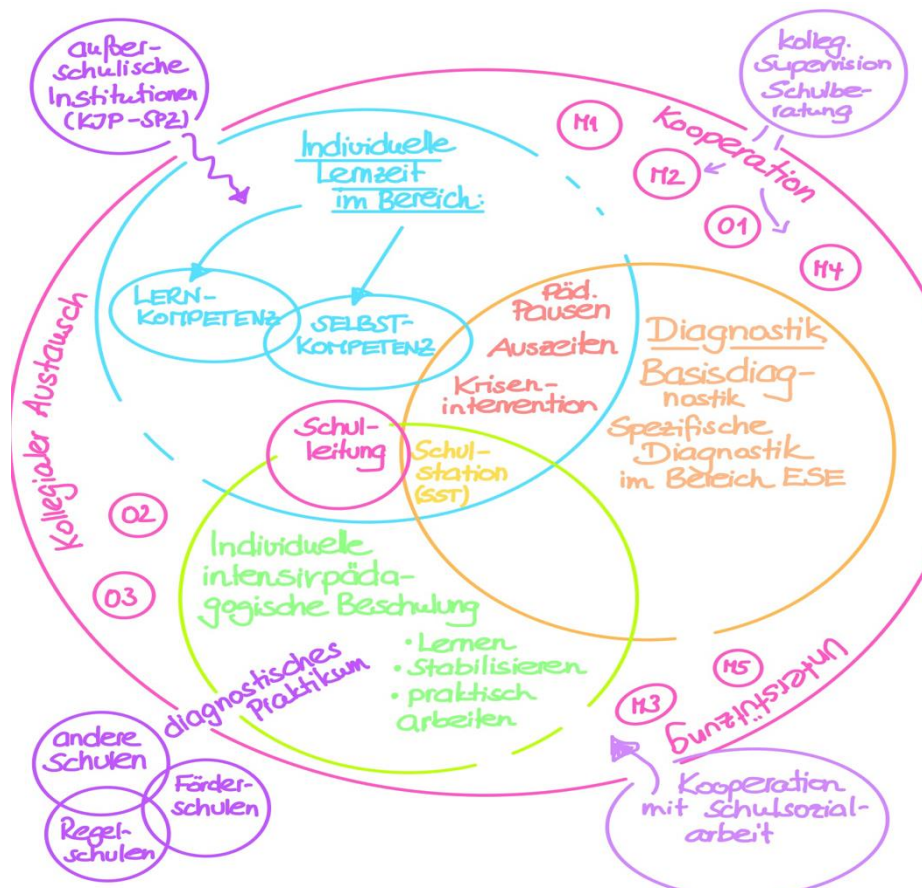 außer-
schulische
Institutionen
(KJP-SPZ)
kolleg.
Supervision
Schulbe-
ratung
Kooperation
M1
M2
O1
M4
Individuelle
Lernzeit
im Bereich:
LERN-
KOMPETENZ
SELBST-
KOMPETENZ
Päd.
Pausen
Auszeiten
Krisen-
intervention
Diagnostik
Basisdiag-
nostik
Spezifische
Diagnostik
im Bereich ESE
Schul-
leitung
Schul-
station
(SST)
Kollegialer Austausch
O2
O3
Individuelle
intensivpäda-
gogische Beschulung
• Lernen
• Stabilisieren
• praktisch
arbeiten
diagnostisches
Praktikum
M5
M3
Unterstützung
andere
Schulen
Förder-
schulen
Regel-
schulen
Kooperation
mit Schulsozial-
arbeit